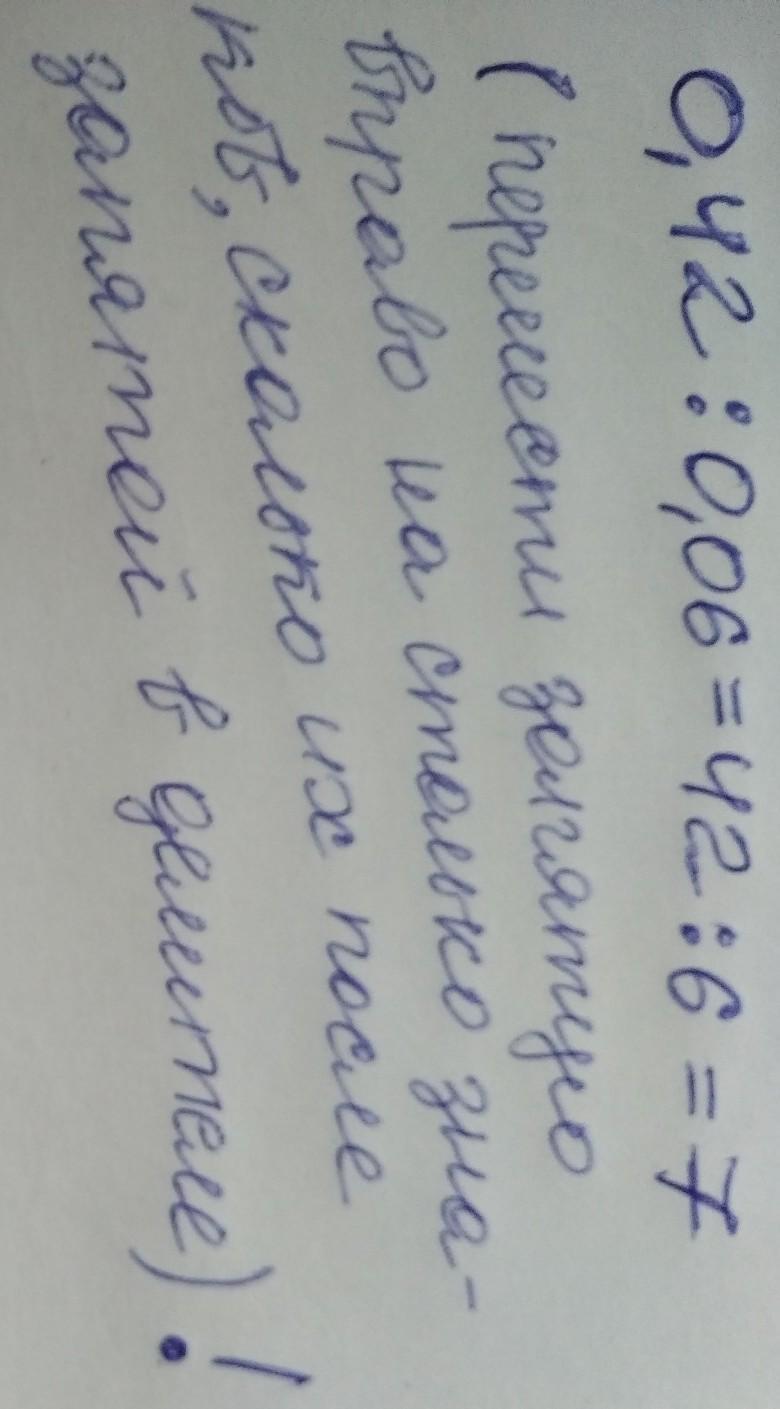 0,42 : 0,06 = 42 : 6 = 7
( перенести запятую
вправо на столько зна-
ков, сколько их после
запятой в делителе) !